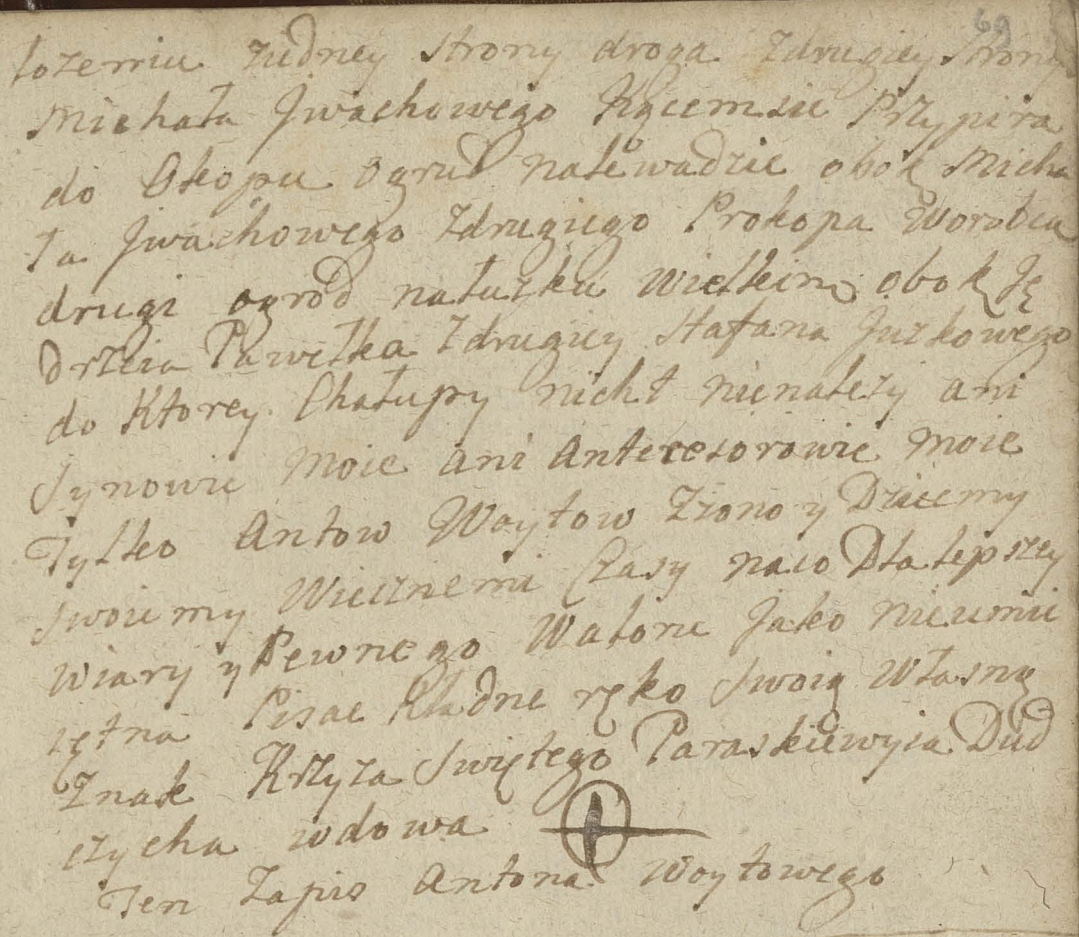 69
łozeniu ziedney strony droga zdrugiey strony
Michała Jwachowego Kącemsie Przypira
do Okopu ogrud nalewadzie obok Micha
ła Jwachowego zdrugiego Prokopa Worobca
drugi ogrod nałuzku Wielkim obok Ję
Drzeia Pawełka zdrugiey Stafana Juzkowego
do Ktorey Chałupy nicht nienależy ani
Synowie Moie ani Antecesorowie Moie
Tylko Antow Woytow Zzono y Dziecmy
Swoiemy Wiecznemi Czasy naco Dla lepszey
Wiary y Pewnego Waloru Jako nieumie
iętna Pisac Kładne ręko Swoią Własną
Znak Krzyza Swiętego Paraskiewyia Dud
czycha wdowa
Ten Zapis Antona Woytowego